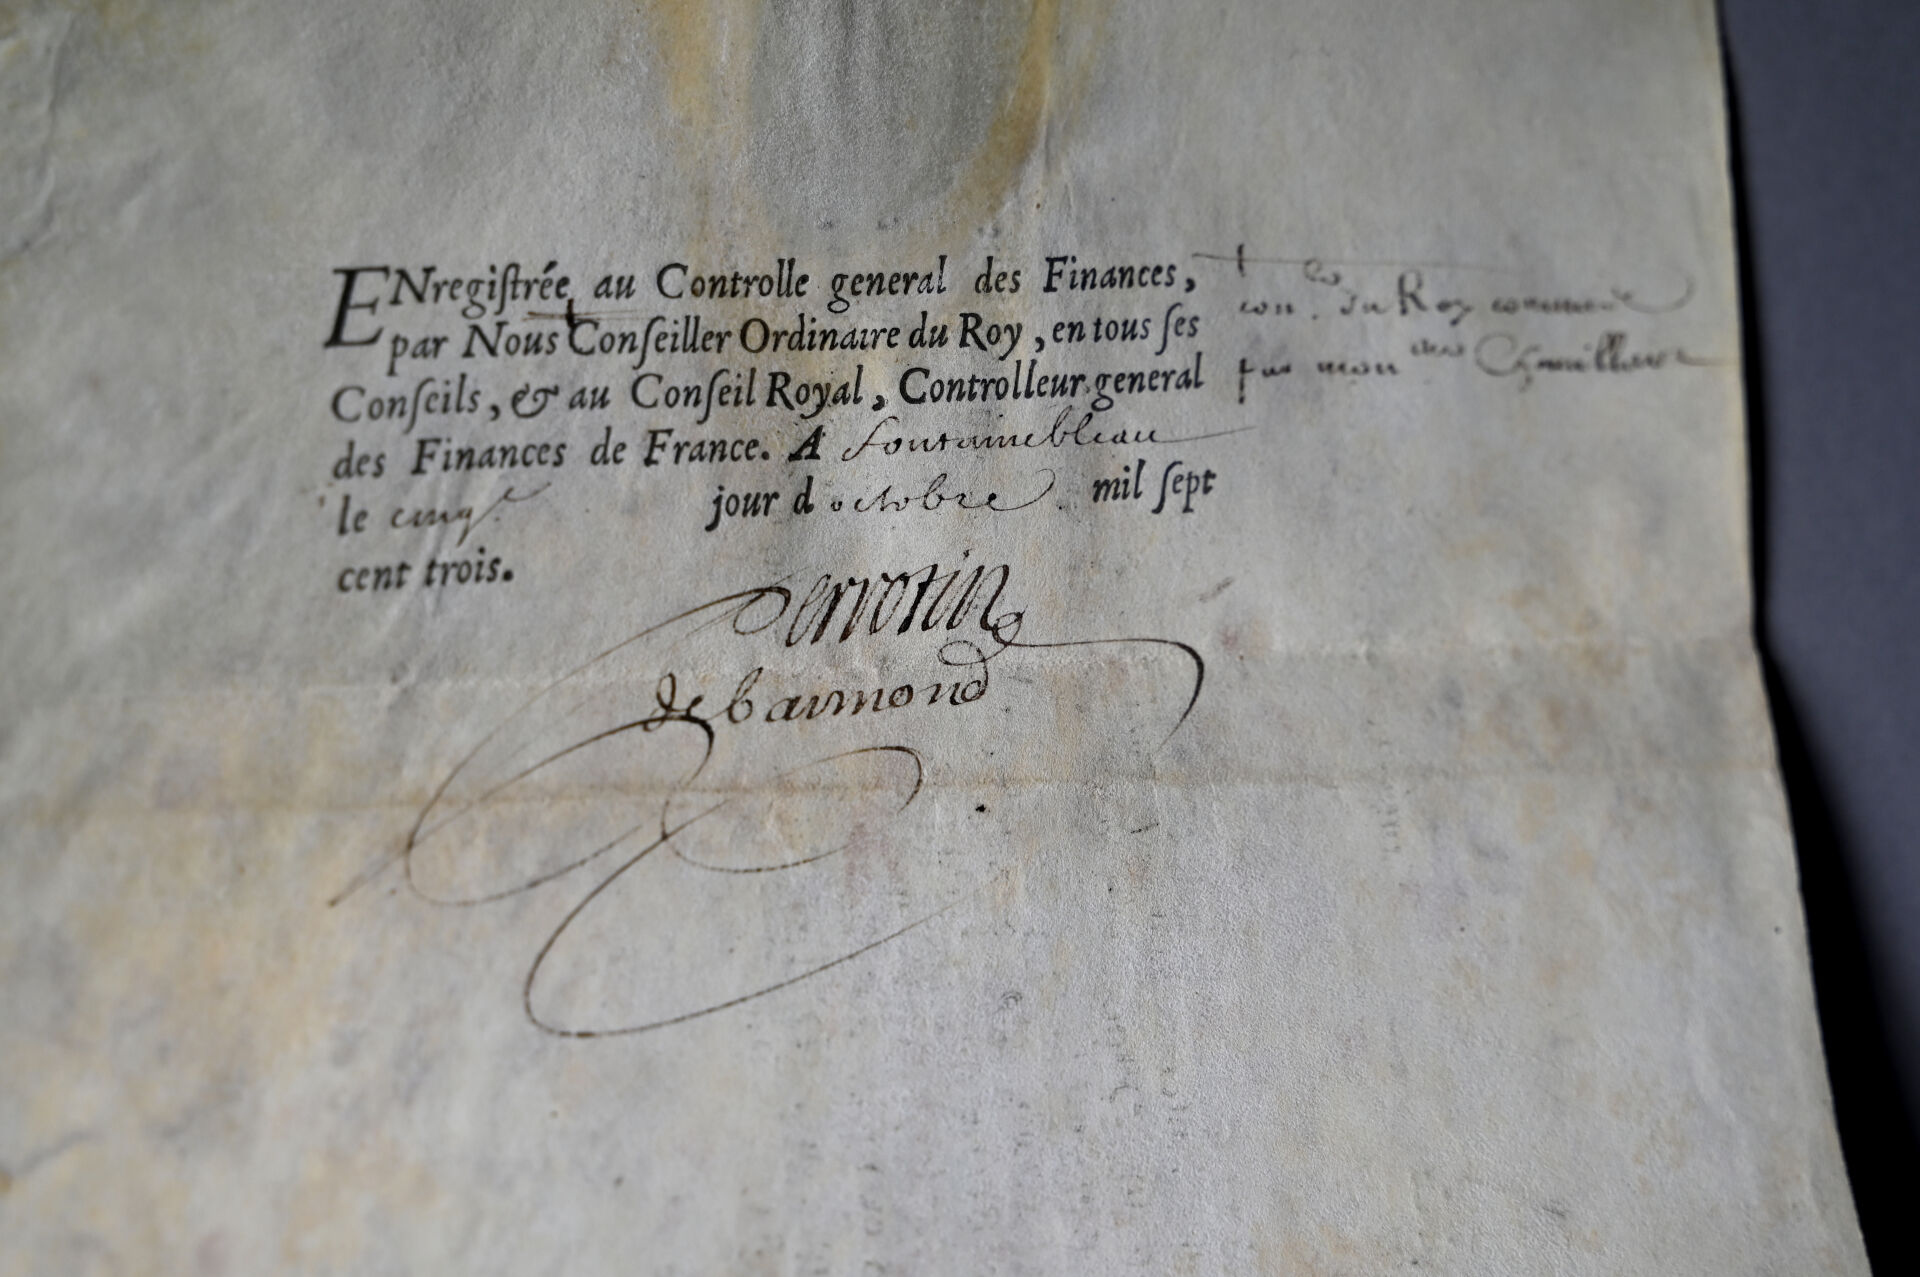 ENregiſtrée au Controlle general des Finances,
par Nous Conſeiller Ordinaire du Roy, en tous ſes
Conſeils, & au Conſeil Royal, Controlleur general
des Finances de France. A fontainebleau
le cinqe jour d octobre mil ſept
cent trois.
Perrotin
de barmond
coner du Roy commis
par mon Chamillart